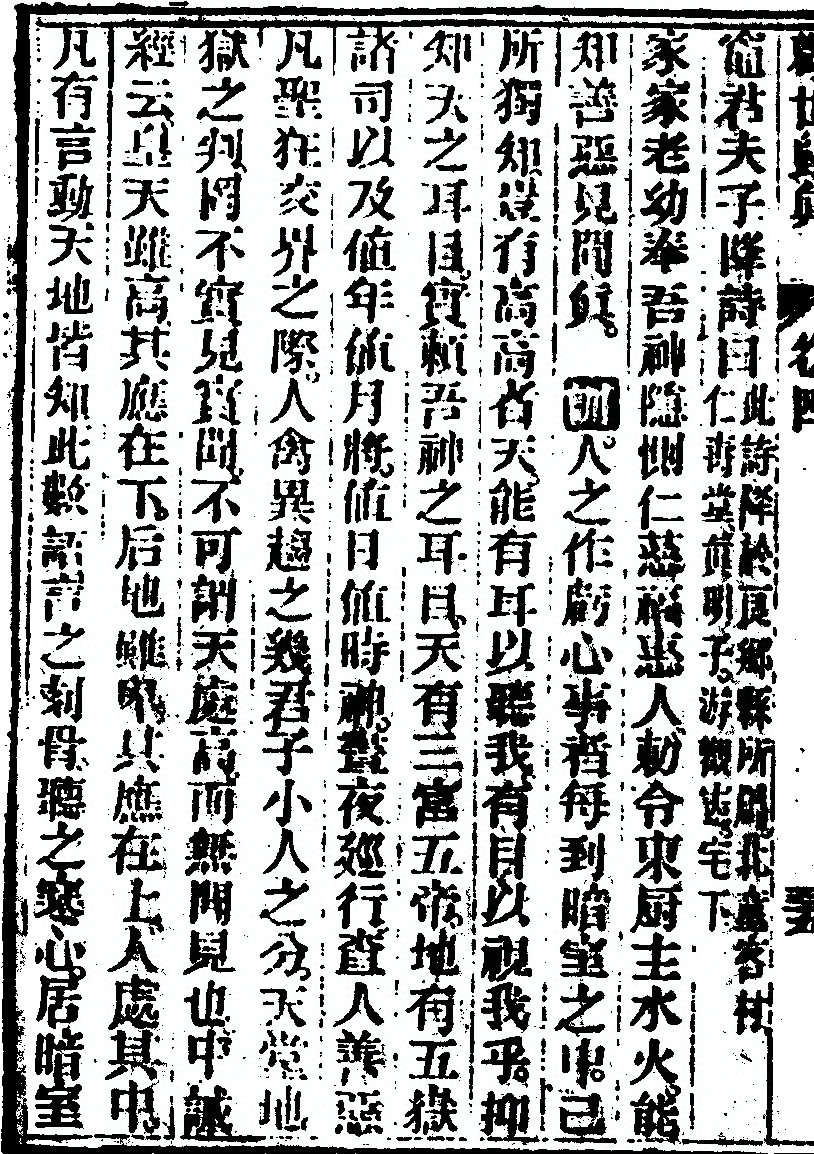 竈君夫子降詩曰此詩降於良鄉縣所屬北童客村
仁壽堂董明子游觀宅下
家家老幼奉吾神隱惻仁慈福惠人勅令東廚主水火能
知善惡見聞眞 訓人之作虧心事者每到暗室之中己
所獨知豈有高高者天能有耳以聽我有目以視我乎抑
知天之耳目實賴吾神之耳目天有三宮五帝地有五嶽
諸司以及值年值月將值日值時神晝夜巡行查人善惡
凡聖狂交界之際人禽異趨之幾君子小人之分天堂地
獄之判罔不實見實聞不可謂天處高而無聞見也中誡
經云皇天雖高其應在下后地雖卑其應在上人處其中
凡有言動天地皆知此數語言之刻骨聽之寒心居暗室